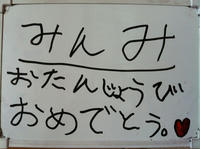 みんみ
おたんじょうび
おめでとう。